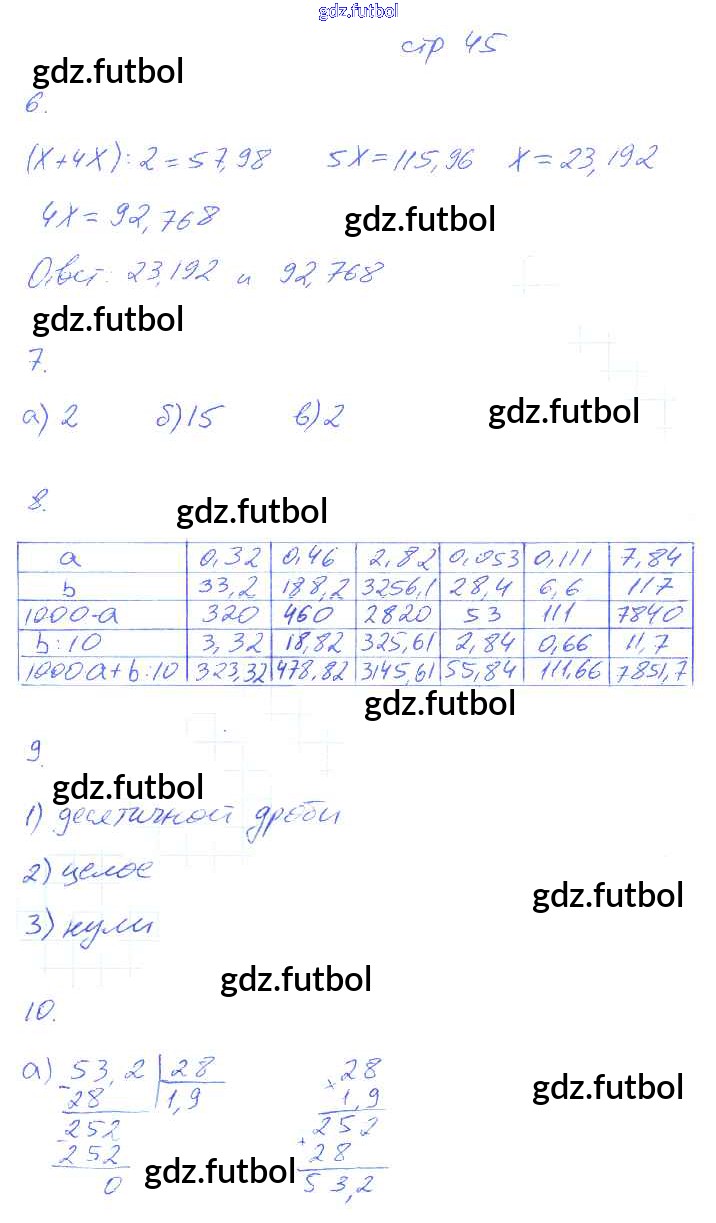 gdz.futbol
стр 45
gdz.futbol
6.
(x+4x):2=57,98 5x=115,96 x=23,192
4x=92,768
gdz.futbol
Ответ: 23,192 и 92,768
gdz.futbol
7.
а) 2 б) 15 в) 2
gdz.futbol
8.
gdz.futbol
a 0,32 0,46 2,82 0,053 0,111 7,84
b 33,2 188,2 3256,1 28,4 6,6 117
1000·a 320 460 2820 53 111 7840
b:10 3,32 18,82 325,61 2,84 0,66 11,7
1000a+b:10 323,32 478,82 3145,61 55,84 111,66 7851,7
gdz.futbol
9.
gdz.futbol
1) десятичной дроби
2) целое
gdz.futbol
3) нули
gdz.futbol
10.
а) 53,2 28 28
- 28 1,9 × 1,9
gdz.futbol
252 252
- 252 + 28
gdz.futbol
0 53,2